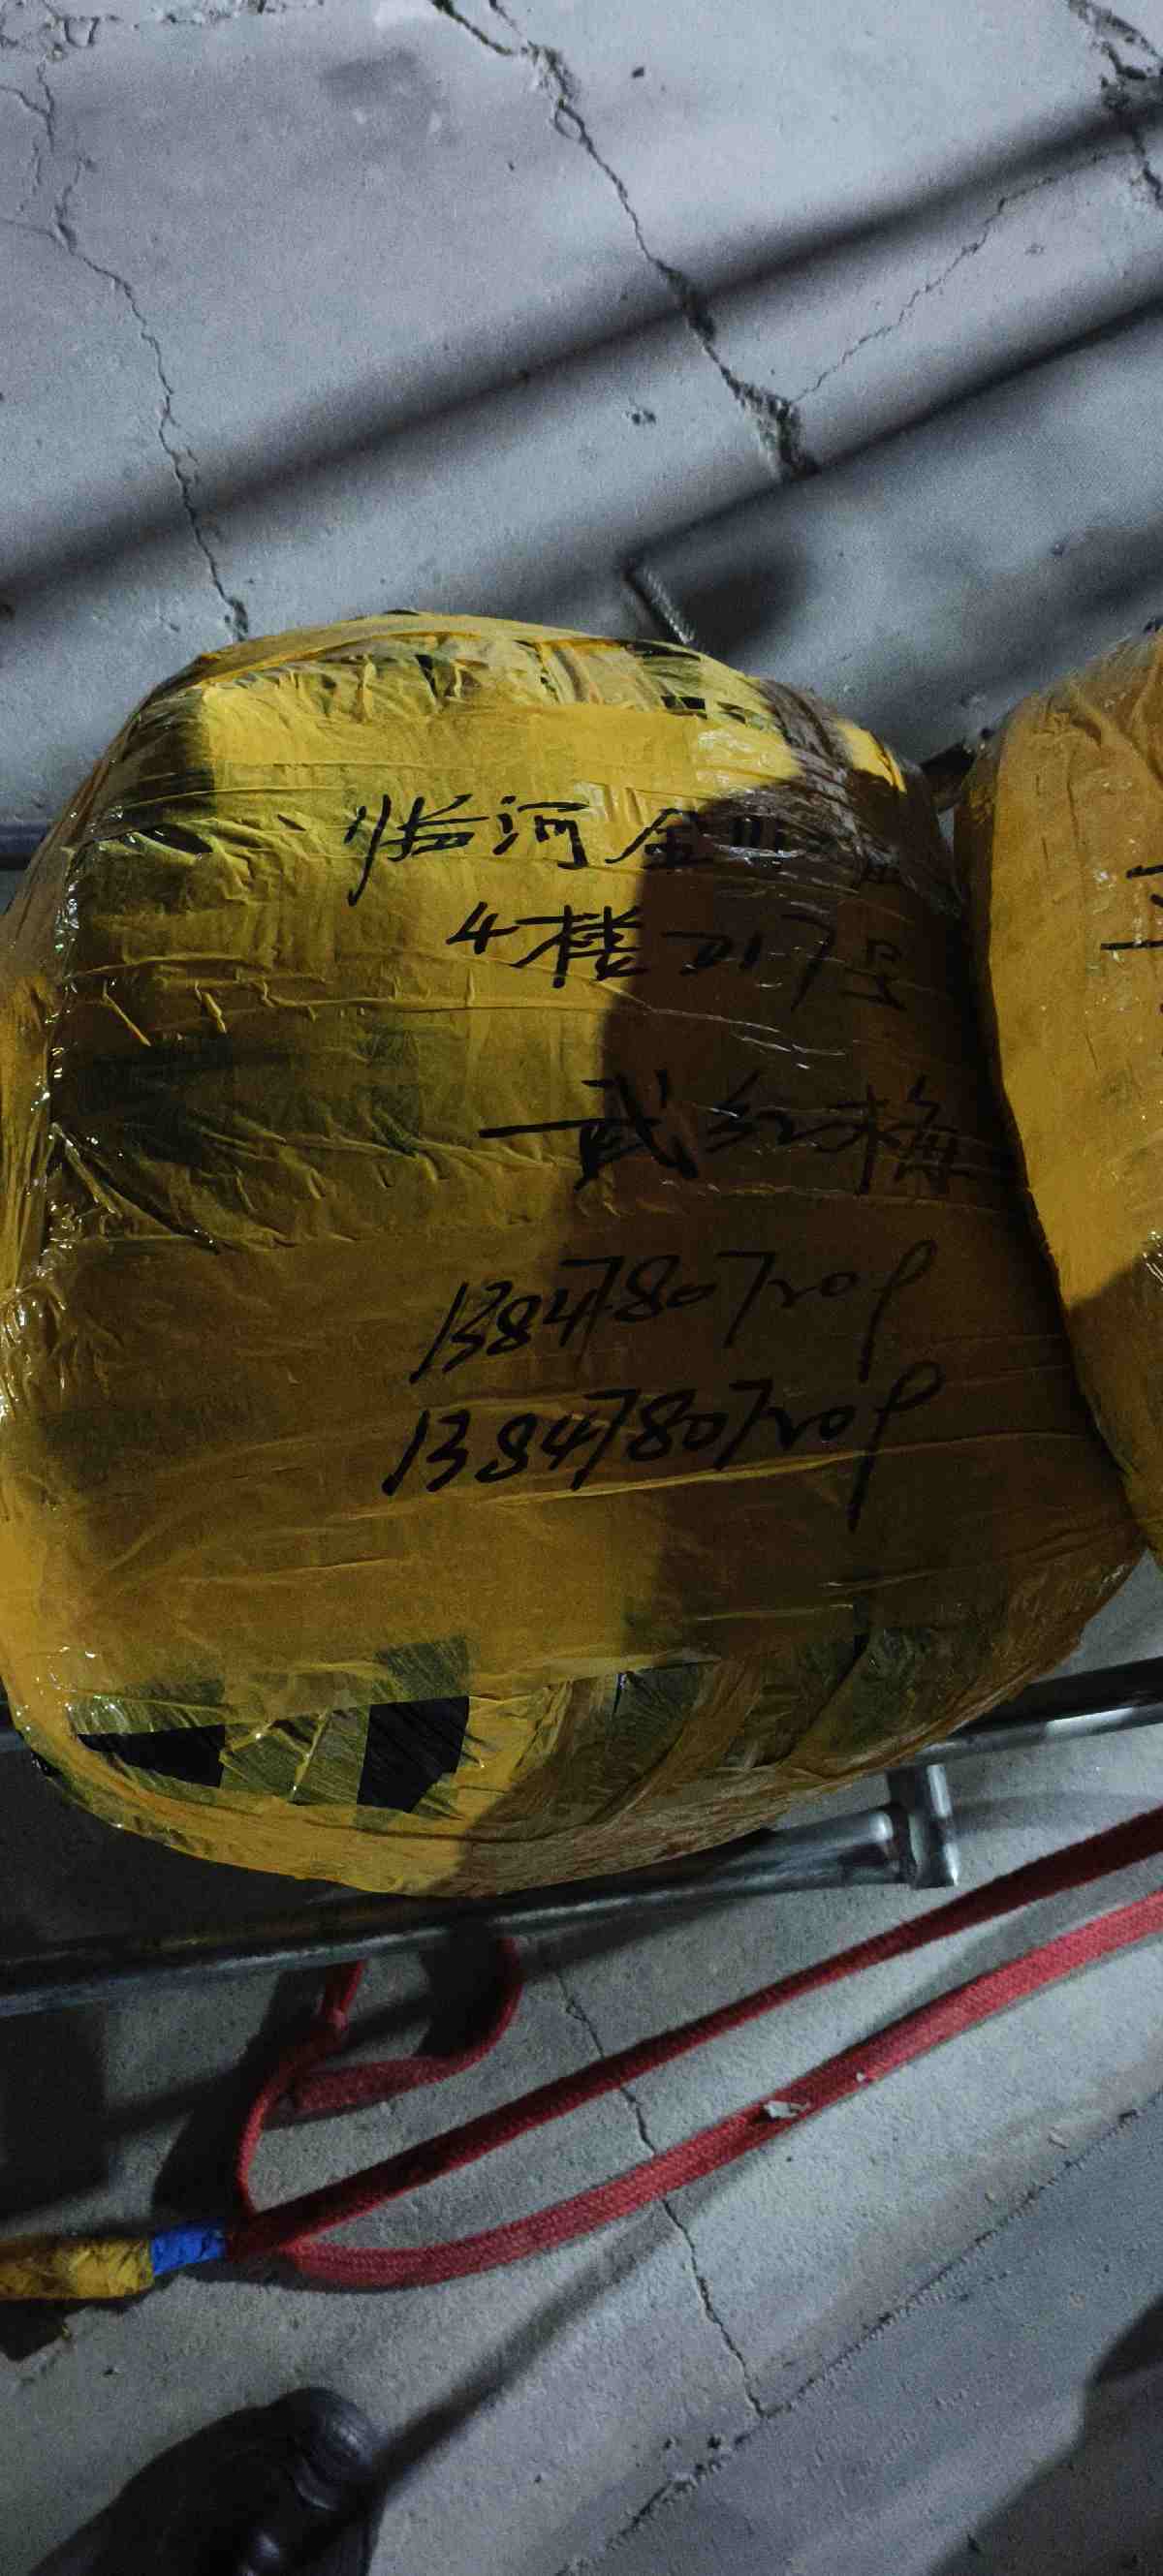 临河金川
4楼217号
武红梅
13847807209
13847807209